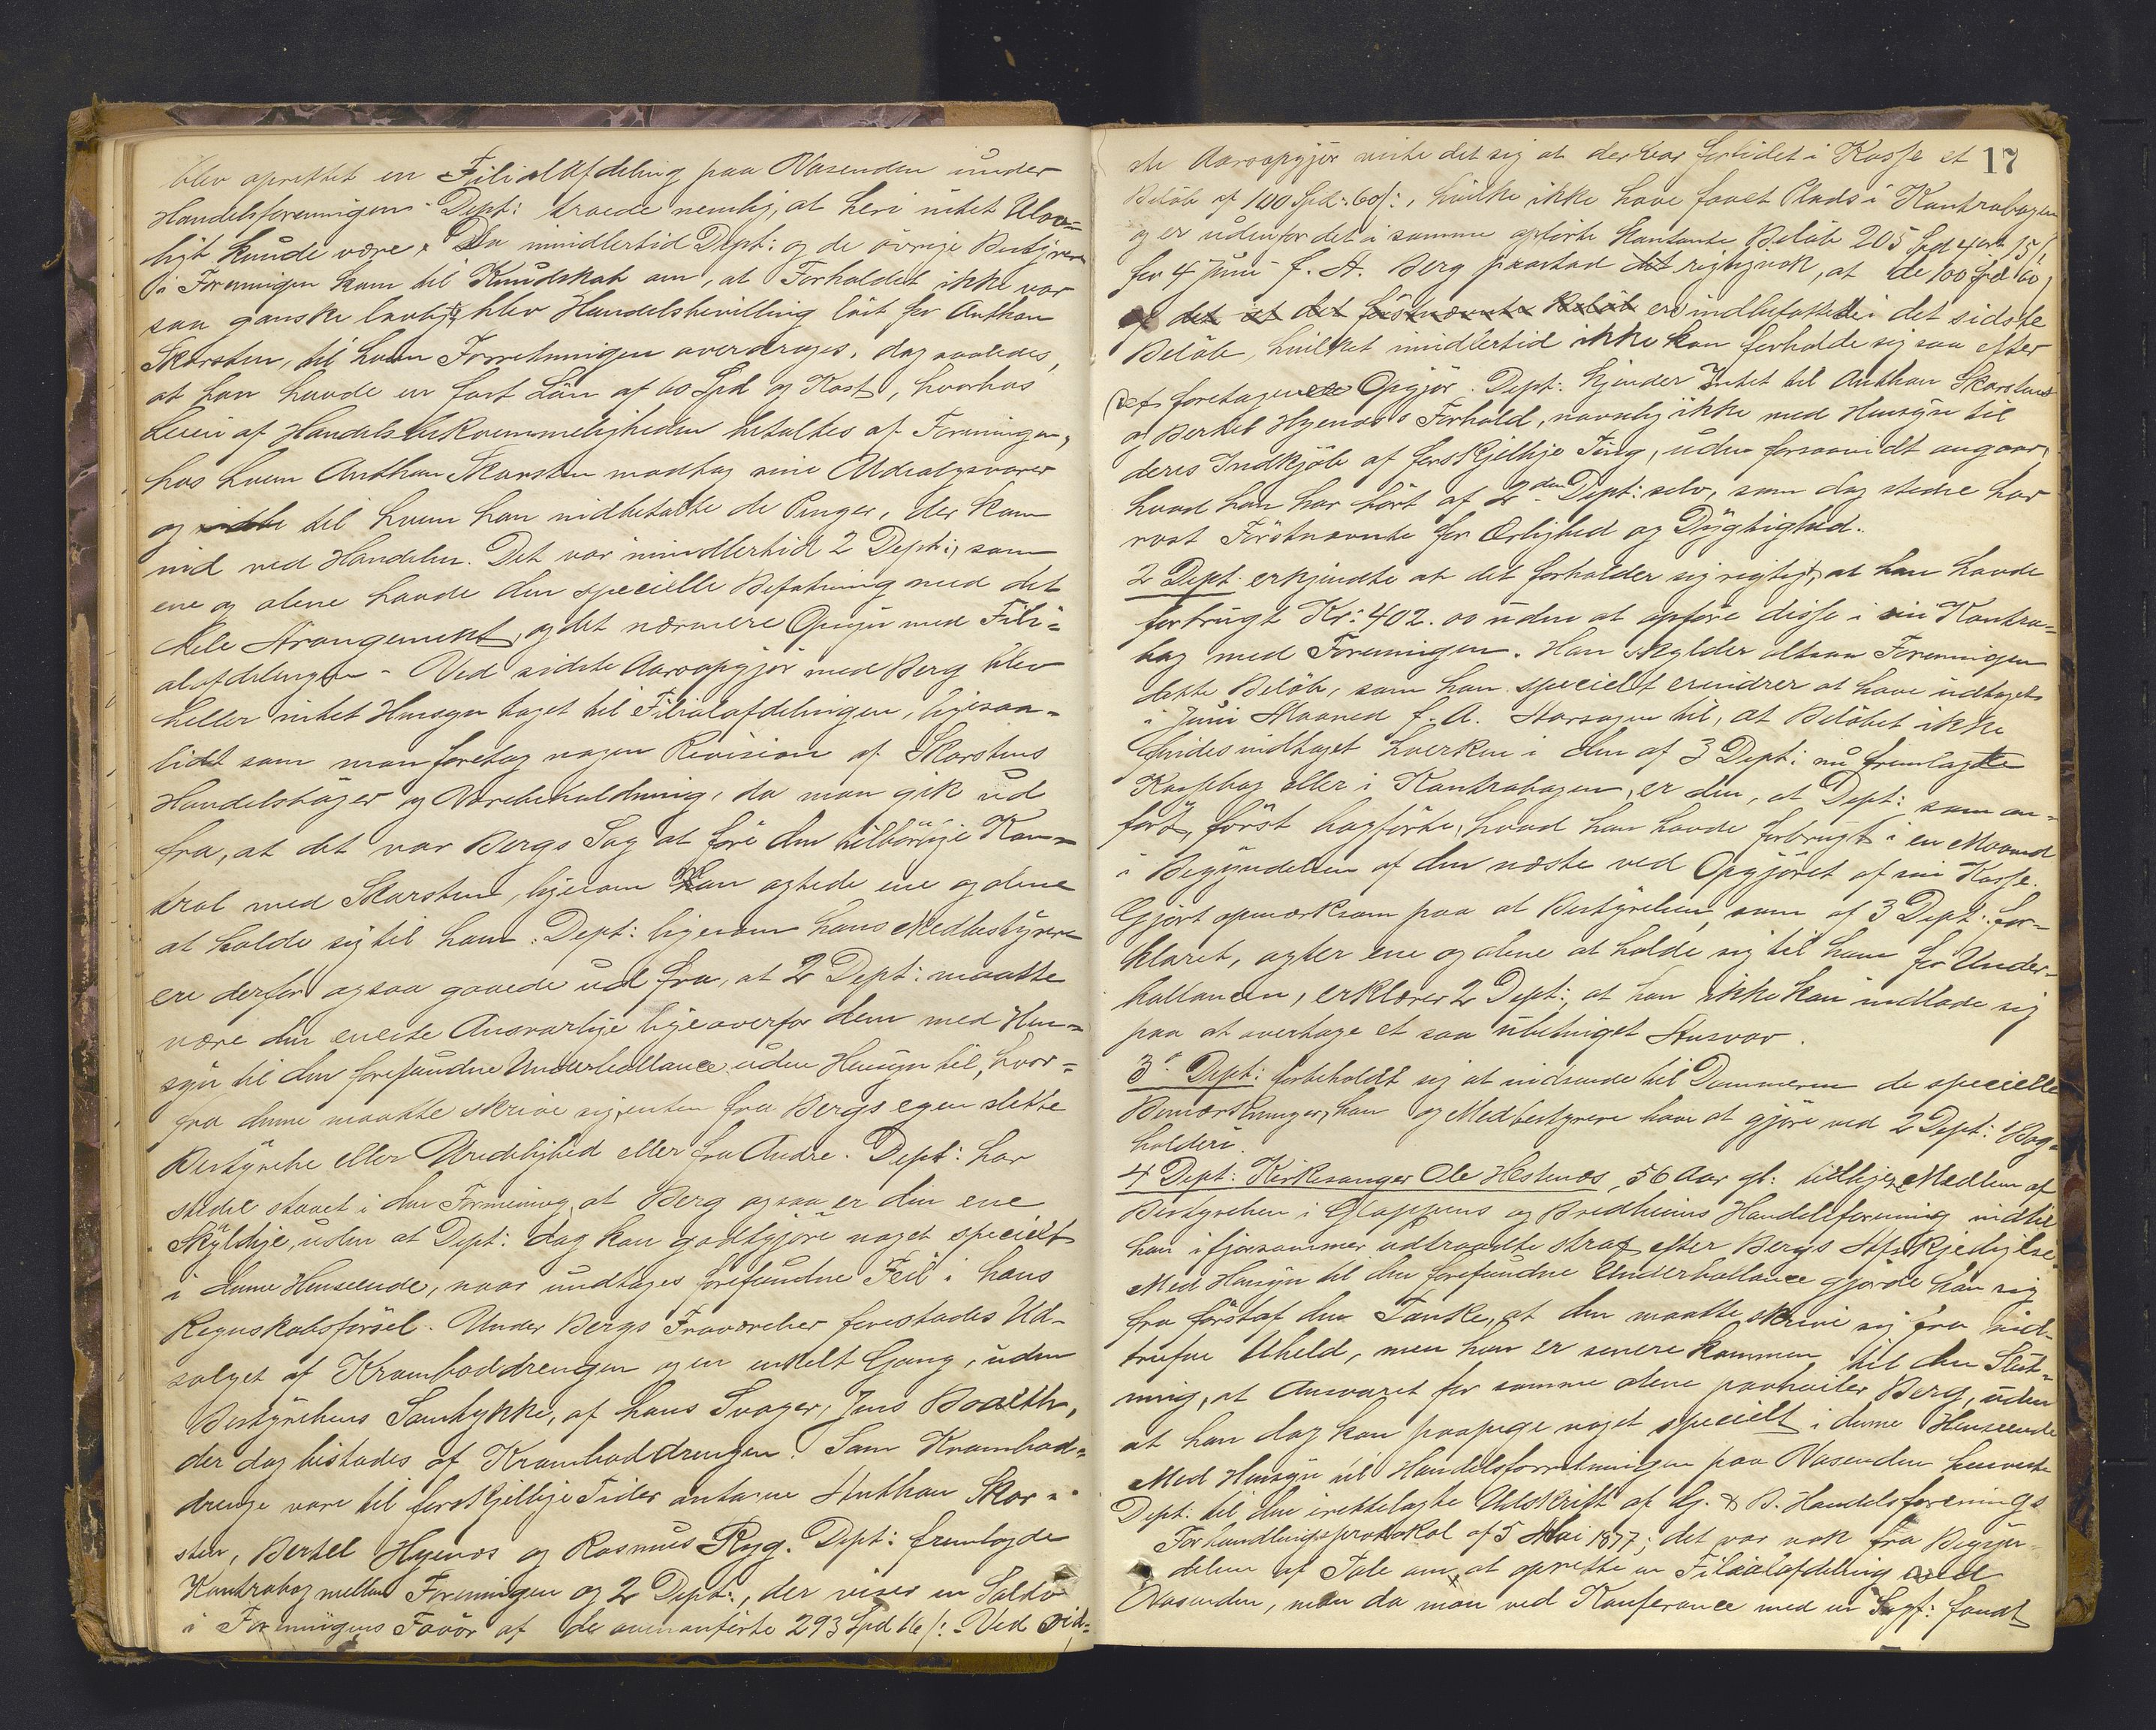 blev oprettet en Filialafdeling paa Vasenden under
Handelsforeningen. Dept: troede nemlig, at heri intet Ulov=
ligt kunde være. Da imidlertid Dept: og de øvrige Bestyrere
i Foreningen kom til Kundskab om, at Forholdet ikke var
saa ganske lovligt, blev Handelsbevilling löst for Anthon
Skarsten, til hvem Forretningen overdroges, dog saaledes,
at han havde en fast Lön af 60 Spd og Kost, hvorhos
Leien af Handelsbekvemmeligheden betaltes af Foreningen,
hos hvem Anthon Skarsten modtog sine Udsalgsvarer
og til hvem han indbetalte de Penge, der kom
ind ved Handelen. Det var imidlertid 2 Dept:, som
ene og alene havde den specielle Befatning med det
hele Arrangement, og det nærmere Opgjör med Fili=
alafdelingen - Ved sidste Aarsopgjör med Berg blev
heller intet Hensyn taget til Filialafdelingen, ligesaa=
lidt som man foretog nogen Revision af Skarstens
Handelsböger og Varebeholdning, da man gik ud
fra, at det var Bergs Sag at före den tilbörlige Kon=
trol med Skarsten, ligesom han agtede ene og alene
at holde sig til ham. Dept: ligesom hans Medbestyrere
ere derfor ogsaa gaaede ud fra, at 2 Dept: maatte
være den eneste Ansvarlige ligeoverfor dem med Hen=
syn til den forefundne Underballance uden Hensyn til, hvor=
fra denne maatte skrive sig, enten fra Bergs egen slette
Bestyrelse eller Uredelighed eller fra Andre. Dept: har
stedse staaet i den Formening, at Berg ogsaa er den ene
Skyldige, uden at Dept: dog kan godtgjöre noget specielt
i denne Henseende, naar undtages forefundne Feil i hans
Regnskabsförsel. Under Bergs Fraværelser forestodes Ud-
salget af Kramboddrengen og en enkelt Gang, uden
Bestyrelsens Samtykke, af hans Svoger, Jens
der dog bistodes af Kramboddrengen. Som Krambod=
drenge vare til forskjellige Tider antagne Anthon Skar=
sten, Bertel Hjenæs og Rasmus Ryg. Dept: fremlagde
Kontrabog mellem Foreningen og 2 Dept:, der viser en Saldo
i Foreningens Favör af de ovenanförte 293 Spd 16 /: - Ved sid=
17
ste Aarsopgjör viste det sig at der var forlidet i Kasse et
Belöb af 100 Spd. 60 /:, hvilke ikke have faaet Plads i Kontrabogen
og er udenfor det i samme opförte kontante Belöb 205 Spd 4 ort 15 /:
for 4 Juni f. A. Berg paastod rigtignok, at de 100 Spd 60 /
af det at det förstnævnte Belöb er indbefattede i det sidste
Belöb, hvilket imidlertid ikke kan forholde sig saa efter
det foretagne Opgjör. Dept: kjender Intet til Anthon Skarstens
og Bertel Hjenæs's Forhold, navnlig ikke med Hensyn til
deres Indkjöb af forskjellige Ting, uden forsaavidt angaar,
hvad han har hört af 2den Dept: selv, som dog stedse har
rost Förstnævnte for Ærlighed og Dygtighed.
2 Dept erkjendte at det forholder sig rigtigt, at han havde
forbrugt Kr: 402.00 uden at opföre disse i sin Kontra=
bog med Foreningen. Han skylder altsaa Foreningen
dette Belöb, som han specielt erindrer at have udtaget
i Juni Maaned f. A. Aarsagen til, at Belöbet ikke
findes indtaget hverken i den af 3 Dept: nu fremlagte
Kassebog eller i Kontrabogen, er den, at Dept: som an=
fört, först bogförte, hvad han havde forbrugt i en Maaned
i Begyndelsen af den næste ved Opgjöret af sin Kasse.
Gjort opmærksom paa at Bestyrelsen, som af 3 Dept: for=
klaret, agter ene og alene at holde sig til ham for Under=
ballancen, erklærer 2 Dept:, at han ikke kan indlade sig
paa at overtage et saa ubetinget Ansvar.
3. Dept: forbeholdt sig at indsende til Dommeren de specielle
Bemærkninger, han og Medbestyrere have at gjöre ved 2 Dept:s Bog=
holderi.
4 Dept: Kirkesanger Ole Hestenæs, 56 Aar gl: tidligere Medlem af
Bestyrelsen i Gloppens og Bredheims Handelsforening indtil
han ifjorsommer udtraadte strax efter Bergs Afskjedigelse.
Med Hensyn til den forefundne Underballance gjorde han sig
fra först af den Tanke, at den maatte skrive sig fra ind=
trufne Uheld, men han er senere kommen til den Slut=
ning, at Ansvaret for samme alene paahviler Berg, uden
at han dog kan paapege noget specielt i denne Henseende
Med Hensyn til Handelsforretningen paa Vasenden henviste
Dept: til den irettelagte Udskrift af G. & B. Handelsforenings
Forhandlingsprotokol af 5 Mai 1877; det var nok fra Begyn=
delsen af Tale om at oprette en Filialafdeling ved
Vasenden, men da man ved Konferance med en Sagf: fandt